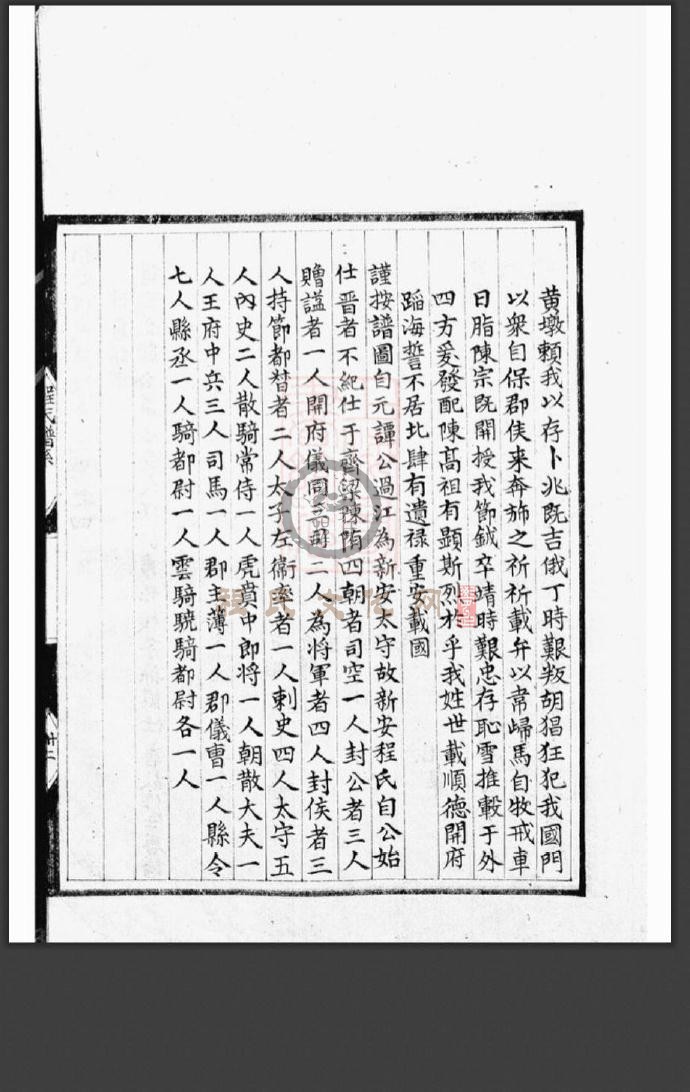 黄墩頼我以存卜兆既吉俄丁時艱叛胡猖狂犯我國門
以衆自保郡侯来奔斾之祈祈載弁以韋歸馬自牧戒車
日脂陳宗既開授我節鉞卒靖時艱忠存恥雪推轂于外
四方爰發配陳髙祖有顕斯烈於乎我姓世載順德開府
蹈海誓不居北肆有遺禄重安載國
謹按譜圖自元譚公過江為新安太守故新安程氏自公始
仕晋者不絶仕于齊梁陳隋四朝者司空一人封公者三人
贈諡者一人開府儀同三司二人為将軍者四人封侯者三
人持節都督者二人太子左衛率者一人刺史四人太守五
人内史二人散騎常侍一人虎賁中郎将一人朝散大夫一
人王府中兵三人司馬一人郡主薄一人郡儀曹一人縣令
七人縣丞一人騎都尉一人雲騎驍騎都尉各一人
程氏譜系
廿二
程氏文化网